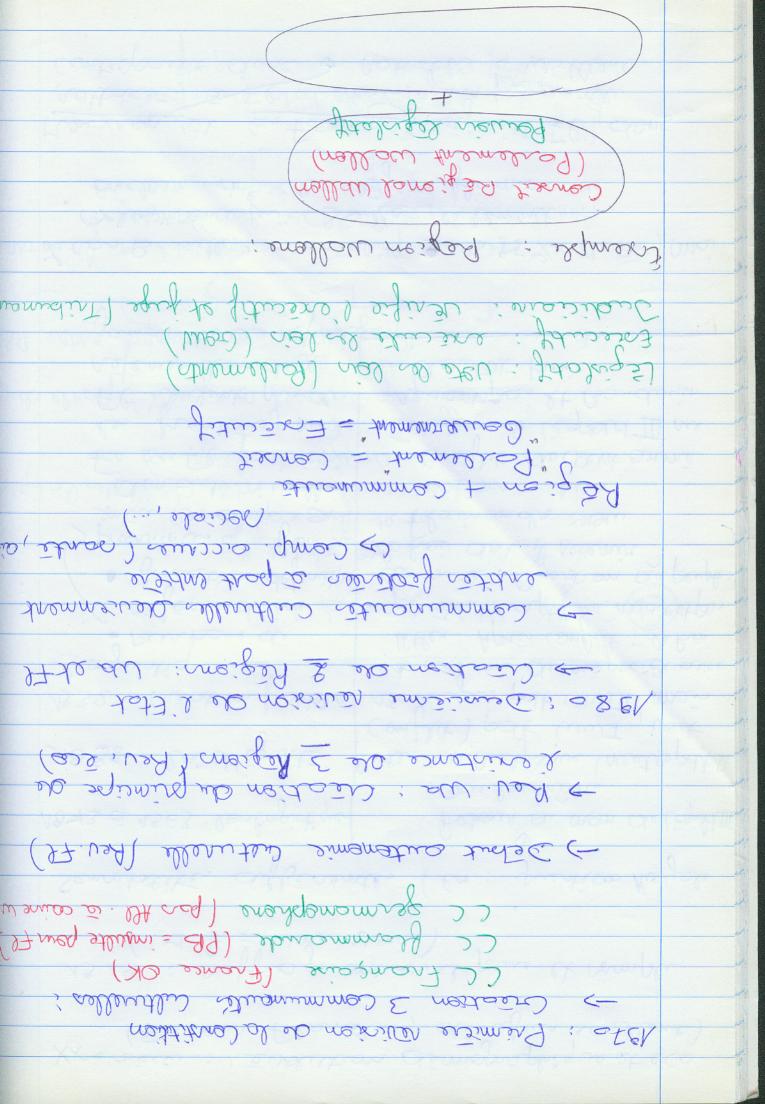 1970 : Première révision de la Constitution
→ Création 3 communautés culturelles :
CC Française (France OK)
CC flammande (PB = insulte pour Fl)
CC germanophone (pas All. à cause
→ Début autonomie culturelle (Rev. Fl)
→ Rev. Wa : Création du principe de
l'existence de 3 Régions (Rev. éco)
1980 : Deuxième révision de l'Etat
→ Création de 2 Régions : Wa et Fl
→ Communautés culturelles deviennent
entités fédérées à part entière
↳ Comp. accrues (santé,
sociale, ...)
Région + Communauté
"Parlement" = Conseil
"Gouvernement" = Exécutif
Législatif : vote les lois (Parlements)
Exécutif : exécute les lois (Gouv)
Judiciaire : vérifie l'exécutif et juge (Tribunau
Exemple : Région Wallone :
Conseil Régional Wallon
(Parlement Wallon)
Pouvoir législatif
+